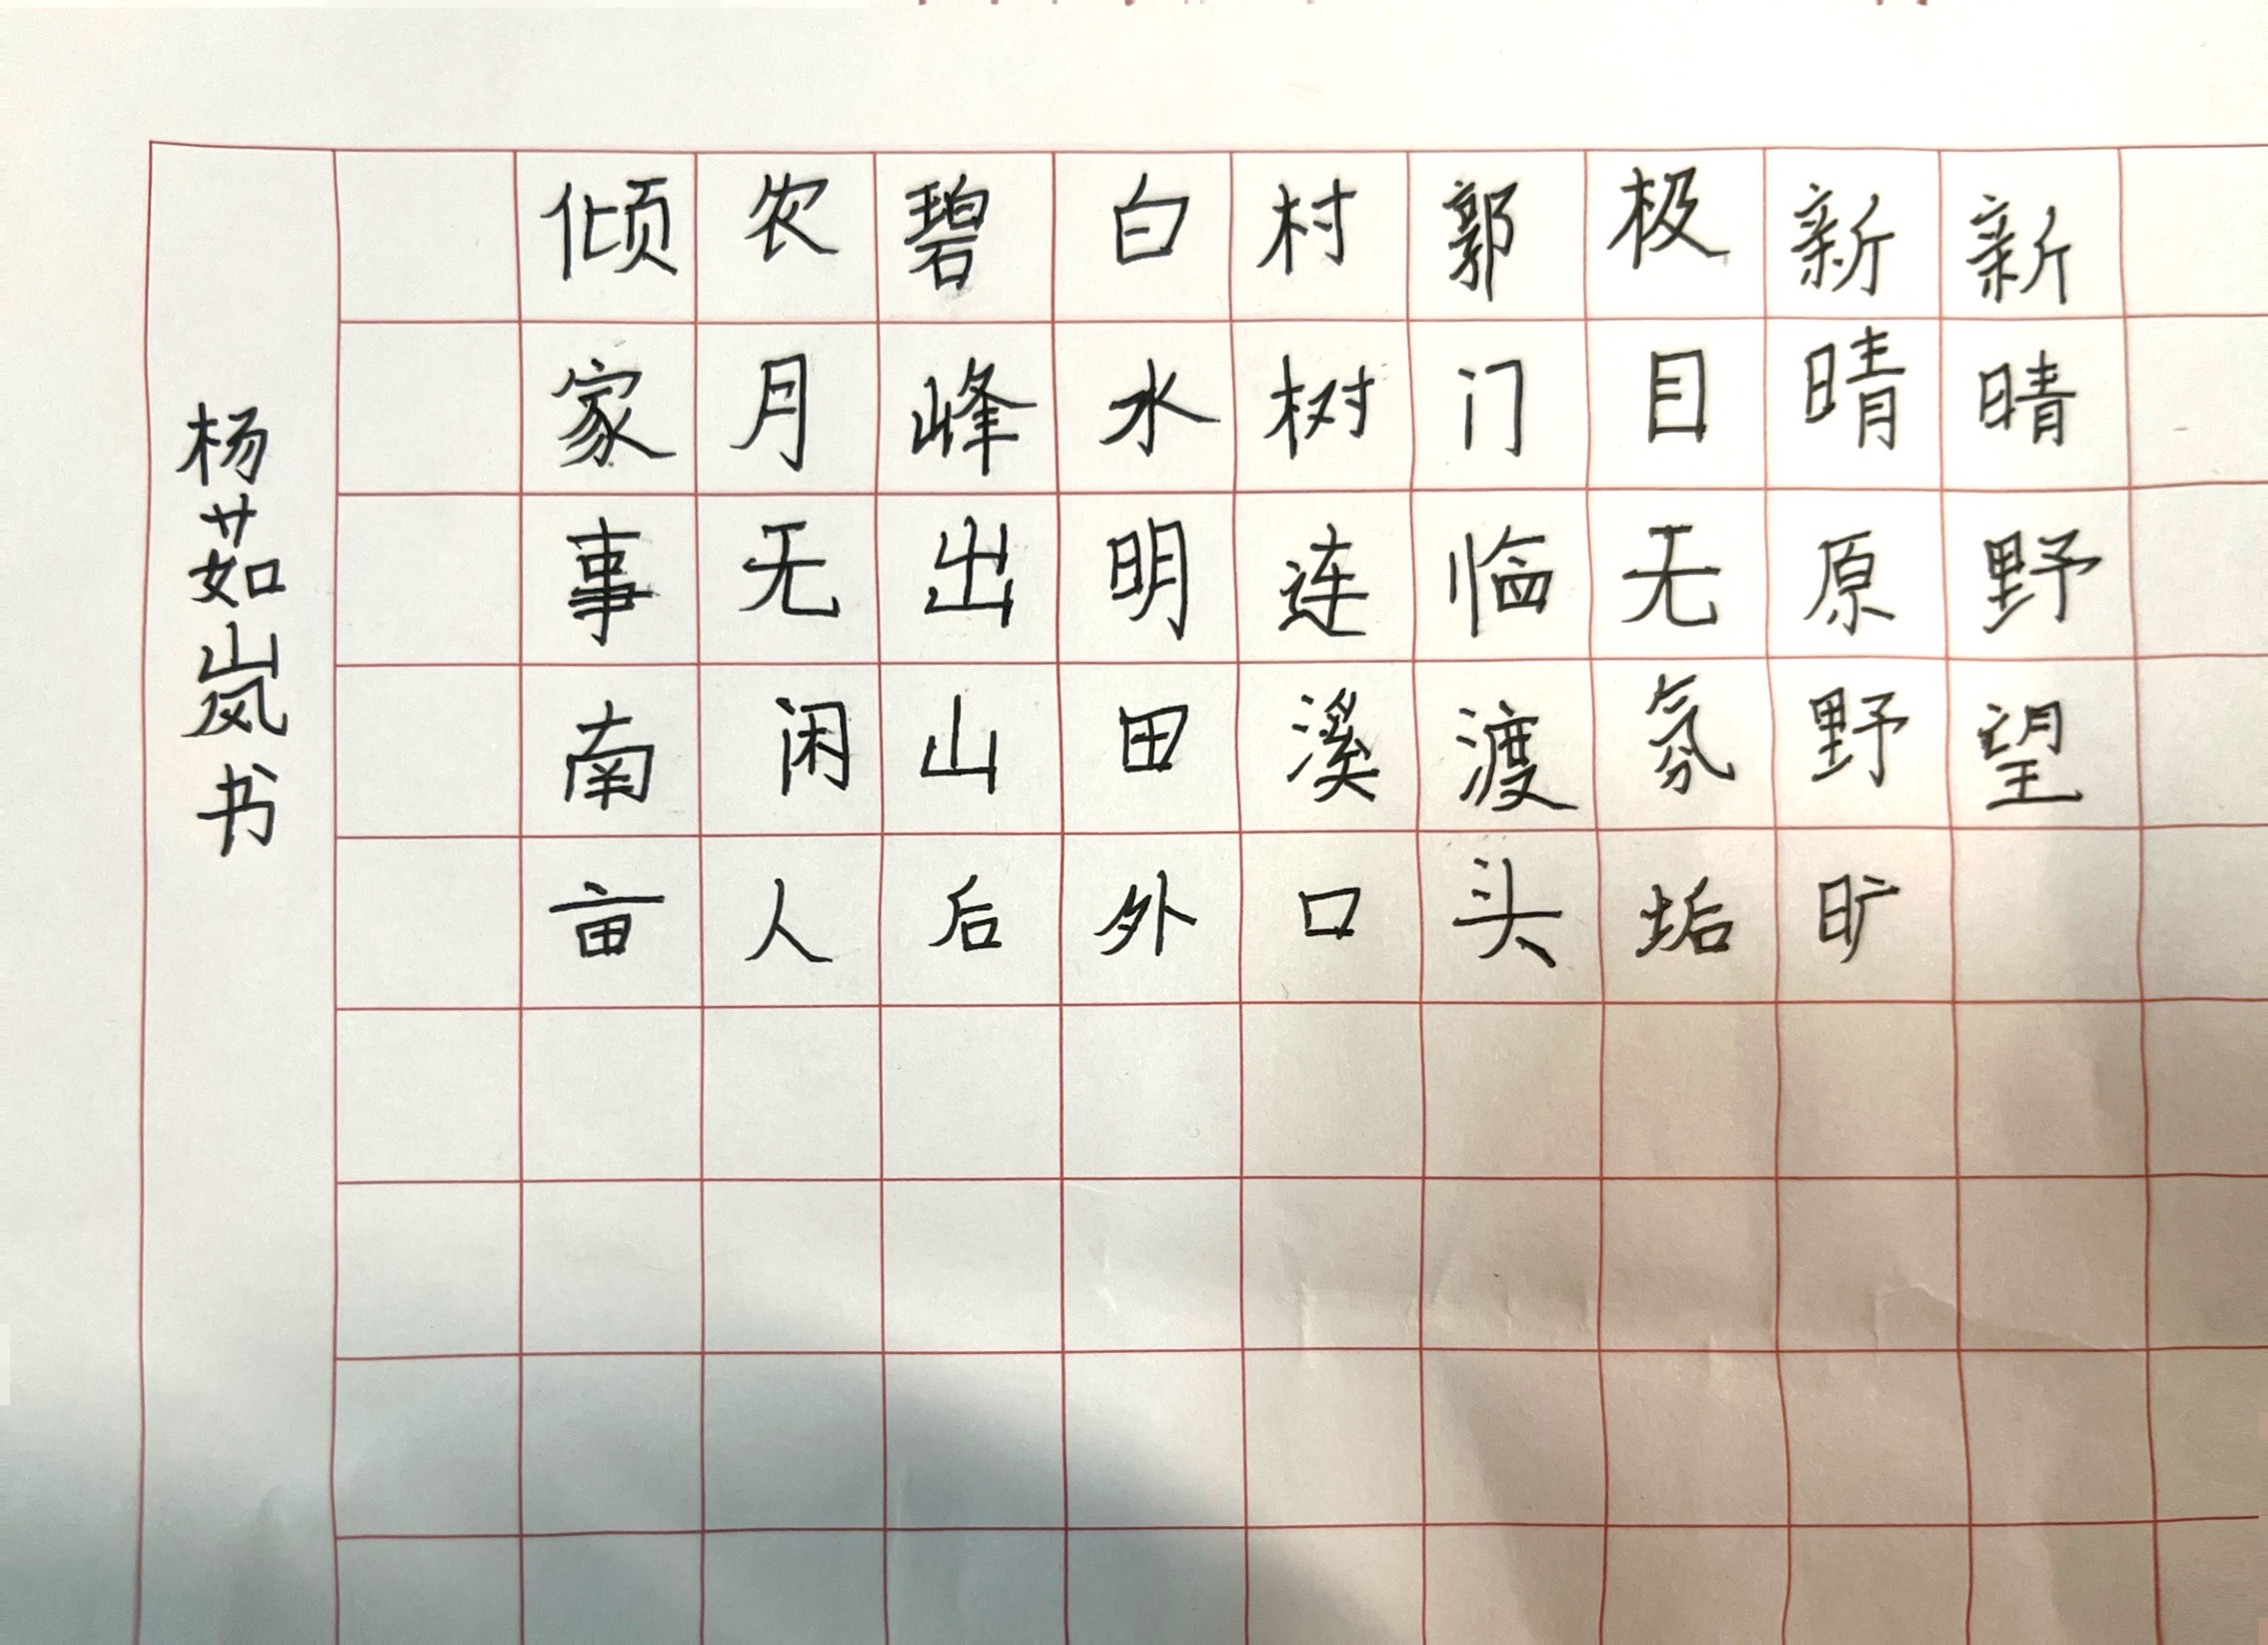 新晴野望
新晴原野旷
极目无氛垢
郭门临渡头
村树连溪口
白水明田外
碧峰出山后
农月无闲人
倾家事南亩
杨茹岚书